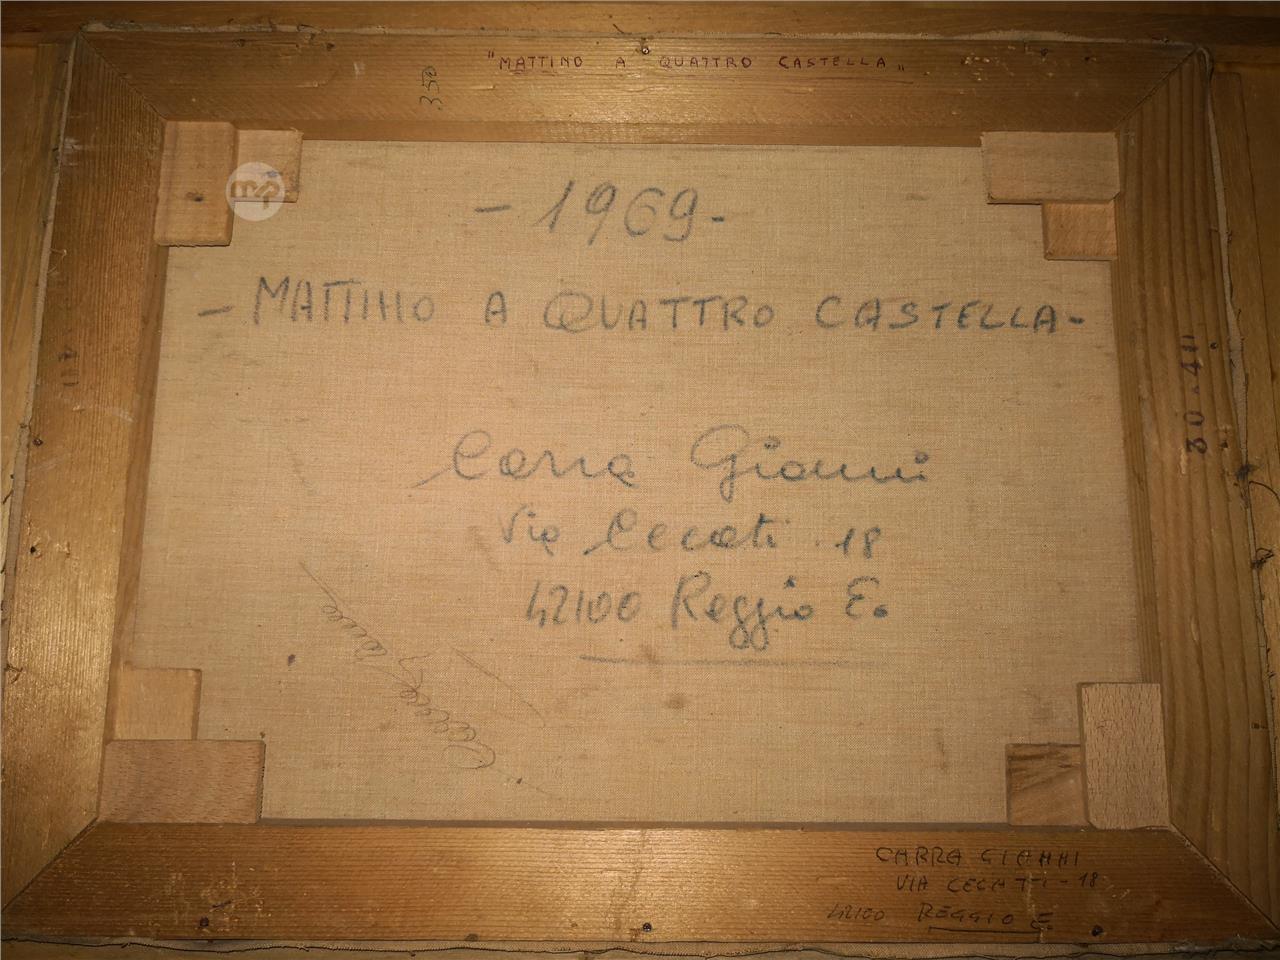 "MATTINO A QUATTRO CASTELLA"
350
mp
- 1969 -
- MATTINO A QUATTRO CASTELLA -
Carra Gianni
Via Cecati 18
42100 Reggio E.
30 . 40
40
CARRA GIANNI
VIA CECATI - 18
42100 REGGIO E.